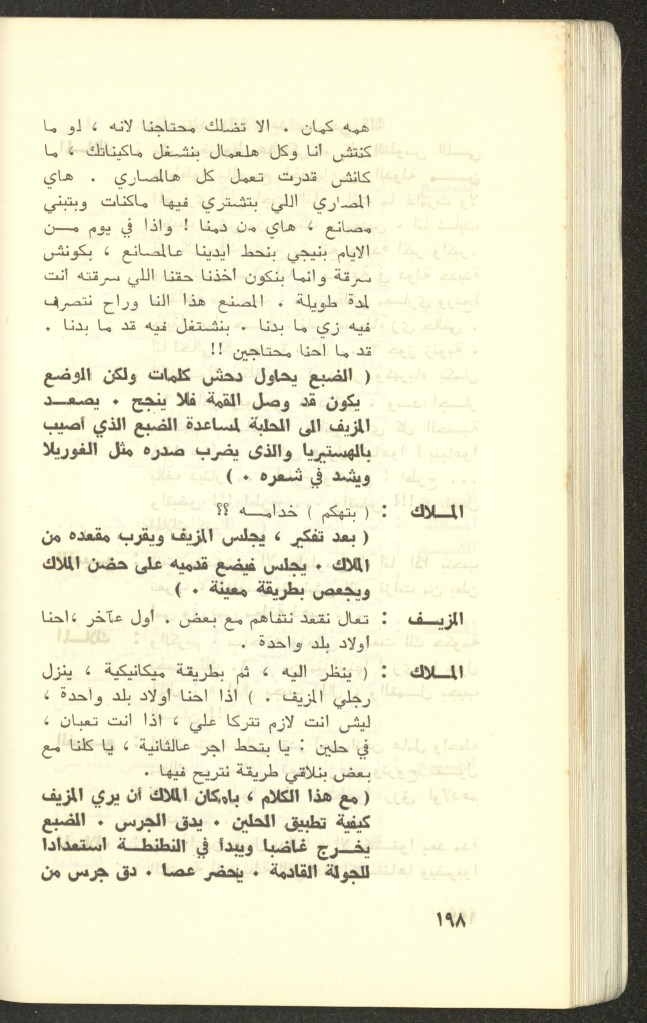 همه كمان . الا تضلك محتاجنا لانه ، لو ما
كنتش انا وكل هلعمال بنشغل ماكيناتك ، ما
كانش قدرت تعمل كل هالمصاري . هاي
المصاري اللي بتشتري فيها ماكنات وبتبني
مصانع ، هاي من دمنا ! واذا في يوم مـــن
الايام بنيجي بنحط ايدينا عالمصانع ، بكونش
سرقة وانما بنكون أخذنا حقنا اللي سرقته انت
لمدة طويلة . المصنع هذا النا وراح نتصرف
فيه زي ما بدنا . بنشتغل فيه قد ما بدنا .
قد ما احنا محتاجين !!
( الضبع يحاول دحش كلمات ولكن الوضع
يكون قد وصل القمة فلا ينجح . يصعـــد
المزيف الى الحلبة لمساعدة الضبع الذي أصيب
بالهستيريا والذى يضرب صدره مثل الغوريلا
ويشد في شعره . )
المــلاك : ( بتهكم ) خدامـــه ؟؟
( بعد تفكير ، يجلس المزيف ويقرب مقعده من
الملاك . يجلس فيضع قدميه على حضن الملاك
ويجعص بطريقة معينة . )
المزيــف : تعال نقعد نتفاهم مع بعض . أول عآخر ،احنا
اولاد بلد واحدة .
المــلاك : ( ينظر اليه ، ثم بطريقة ميكانيكية ، ينزل
رجلي المزيف . ) اذا احنا اولاد بلد واحدة ،
ليش انت لازم تتركا علي ، اذا انت تعبان ،
في حلين : يا بتحط اجر عالثانية ، يا كلنا مع
بعض بنلاقي طريقة نتريح فيها .
( مع هذا الكلام ، بامكان الملاك أن يري المزيف
كيفية تطبيق الحلين . يدق الجرس . الضبع
يخــرج غاضبا ويبدأ في النطنطــة استعدادا
للجولة القادمة . يحضر عصا . دق جرس من
١٩٨